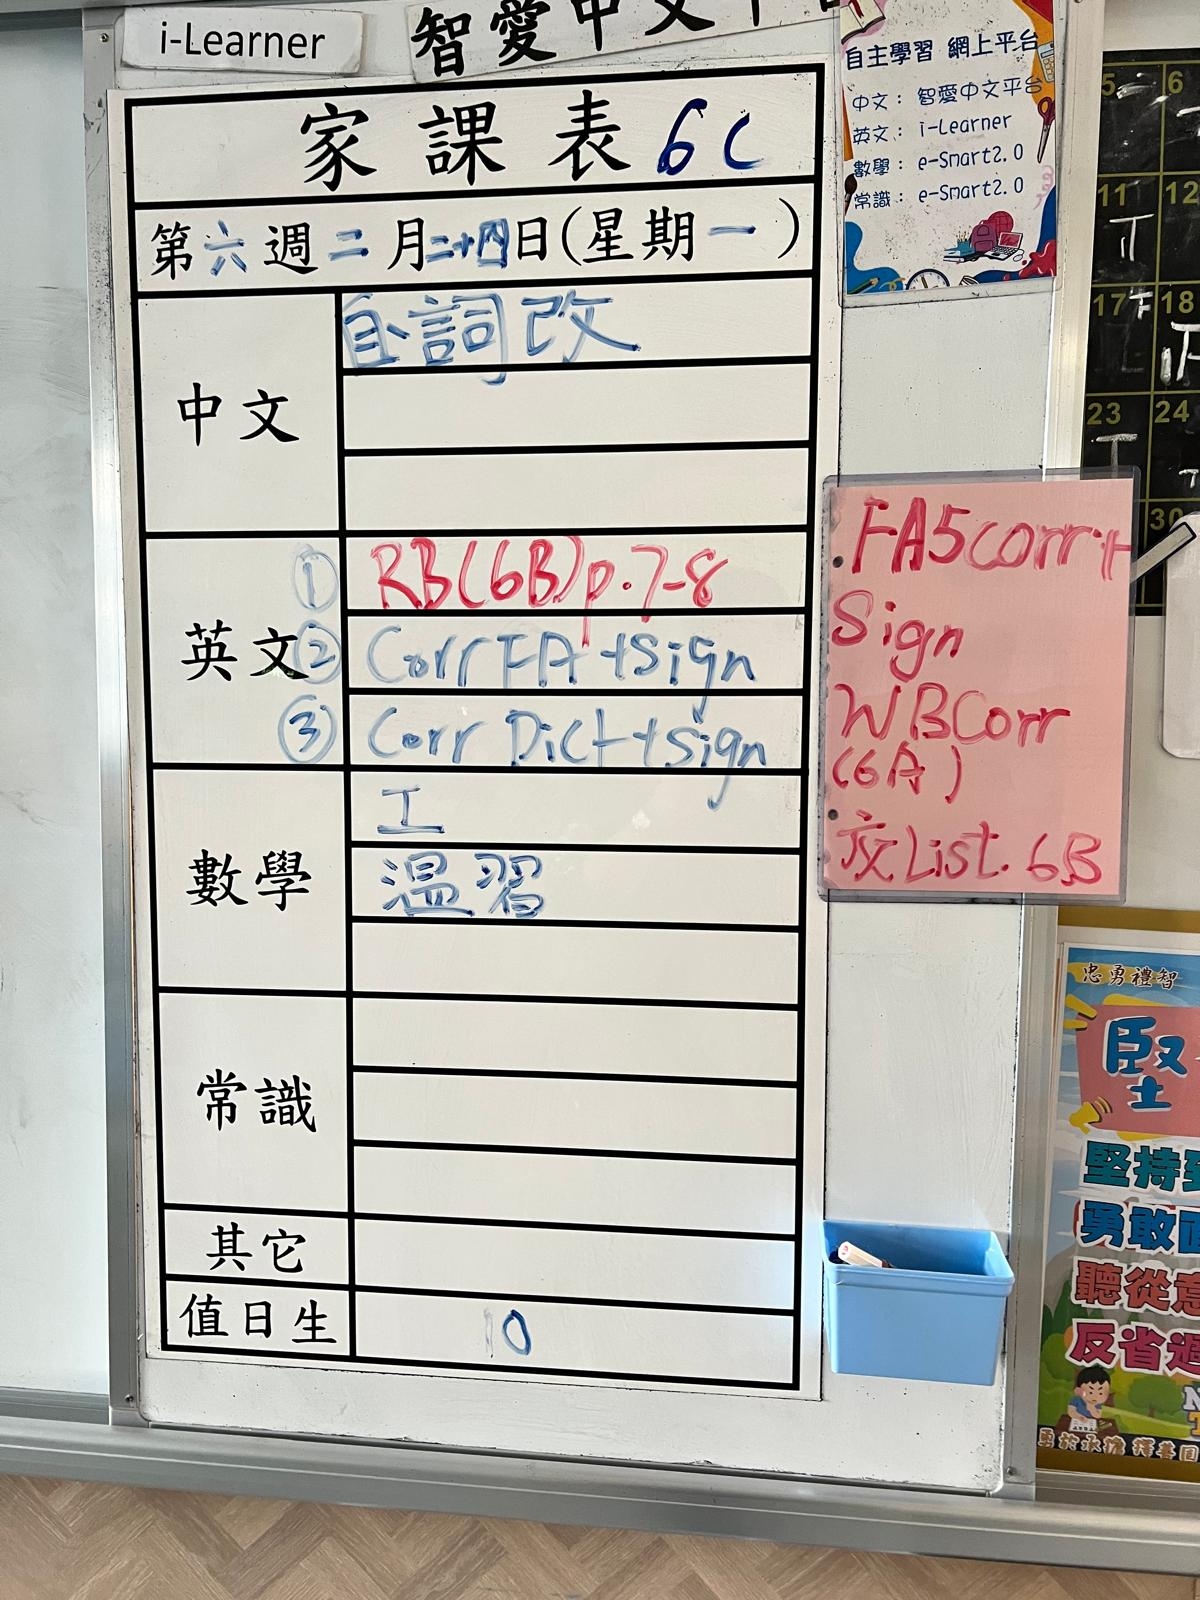 i-Learner
智愛中文平台
家課表 6C
第六週二月二十四日(星期一)
中文
自詞改
英文
① RB(6B)p.7-8
② Corr FA +sign
③ Corr Dict +sign
數學
工
溫習
常識
其它
值日生
10
自主學習 網上平台
中文：智愛中文平台
英文：i-Learner
數學：e-Smart2.0
常識：e-Smart2.0
FA5corr+
Sign
WBCorr
(6A)
交List. 6B
5 6
11 12
T
17 18
T
23 24
T
30
忠勇禮智
堅
堅持
勇敢
聽從意
反省